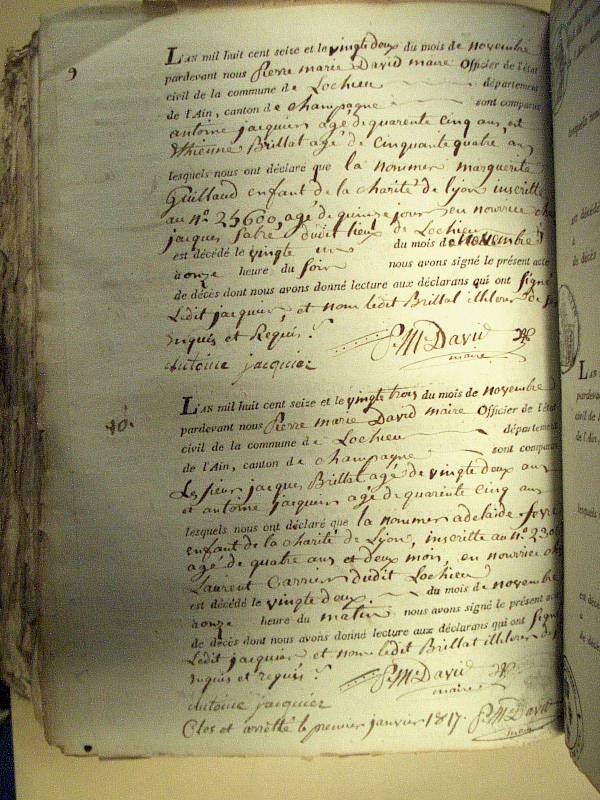 9
L'AN mil huit cent seize et le vingt deux du mois de novembre
pardevant nous Pierre marie David maire Officier de l'état
civil de la commune de Lochieu département
de l'Ain, canton de champagne sont comparus
antoine jacquier agé de quarente cinq ans, et
Ethienne Brillat agé de Cinquante quatre ans
lesquels nous ont déclaré que la nommer marguerite
Guillaud enfant de la charité de lyon inscritte
au n.º 25600, agé de quinze jour en nourrice
jacques fabre dudit lieu de Lochieu
est décédé le vingte un du mois de novembre
à onze heure du soir nous avons signé le présent acte
de décès dont nous avons donné lecture aux déclarans qui ont signé
Ledit jacquier, et nom ledit Brillat illiterer de
enquis et Requis ./.
P. M. David
maire
Antoine jacquier
10.
L'AN mil huit cent seize et le vingt trois du mois de novembre
pardevant nous Pierre marie David maire Officier de l'état
civil de la commune de Lochieu département
de l'Ain, canton de champagne sont comparus
Le sieur jacques Brillat agé de vingte deux ans
et antoine jacquier agé de quarente Cinq ans
lesquels nous ont déclaré que la nommer adelaide
enfant de la charité de Lyon, inscritte au n.º
agé de quatre ans et deux mois, en nourrice
Laurent Carrier dudit Lochieu
est décédé le vingte deux. du mois de novembre
à onze heure du matin nous avons signé le présent acte
de décès dont nous avons donné lecture aux déclarans qui ont signé
Ledit jacquier et nom ledit Brillat illiterer de
enquis et requis ./.
P. M. David
maire
Antoine jacquier
Clos et arretté le premier janvier 1817.
P. M. David
maire